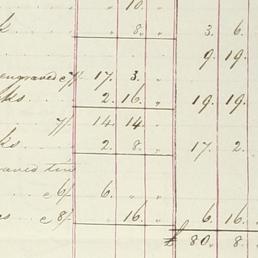 " 10. "
k " 8. " 3. 6.
9. 19.
engraved @ 7/ 17. 3. "
ks 2. 16. " 19. 19.
7/ 14. 14. "
ks 2. 8. " 17. 2. "
@ 6/ 6. " "
es @ 8/ " 16. " 6. 16. "
£ 80. 8. "